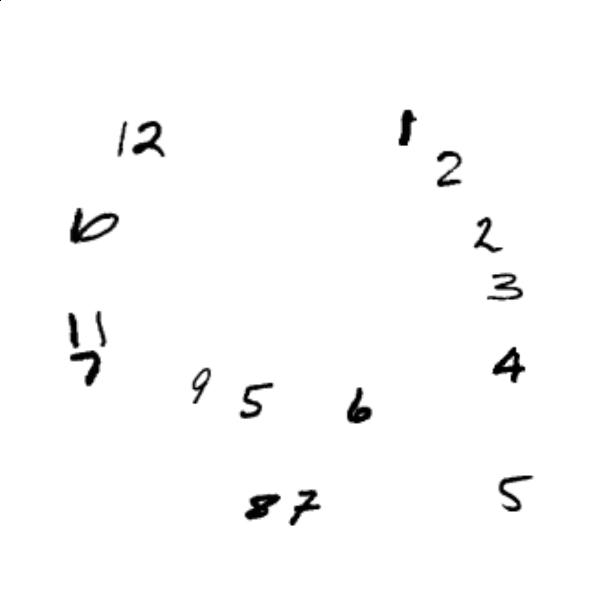 12 1
2
10 2
3
11
7 4
9 5 6
8 7 5